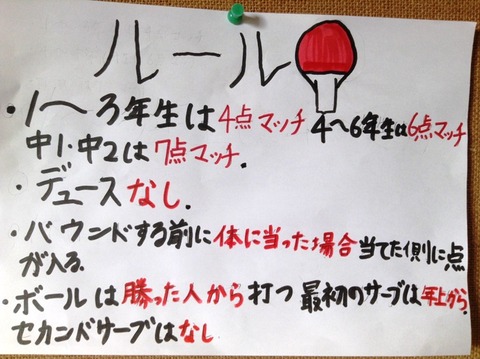 ルール
・1～3年生は4点マッチ 4～6年生は6点マッチ
中1・中2は7点マッチ.
・デュースなし.
・バウンドする前に体に当った場合当てた側に点
が入る.
・ボールは勝った人から打つ 最初のサーブは年上から.
セカンドサーブはなし